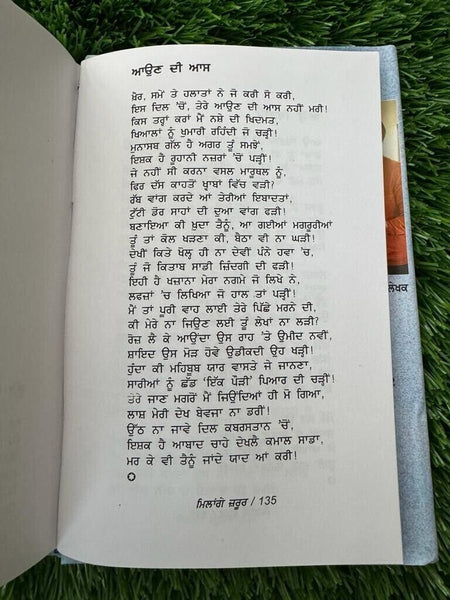 ਆਉਣ ਦੀ ਆਸ
ਖ਼ੈਰ, ਸਮੇਂ ਤੇ ਹਲਾਤਾਂ ਨੇ ਜੋ ਕਰੀ ਸੋ ਕਰੀ,
ਇਸ ਦਿਲ 'ਚੋਂ, ਤੇਰੇ ਆਉਣ ਦੀ ਆਸ ਨਹੀਂ ਮਰੀ!
ਕਿਸ ਤਰ੍ਹਾਂ ਕਰਾਂ ਮੈਂ ਨਸ਼ੇ ਦੀ ਖਿਦਮਤ,
ਖਿਆਲਾਂ ਨੂੰ ਖ਼ੁਮਾਰੀ ਰਹਿੰਦੀ ਜੋ ਚੜ੍ਹੀ!
ਮੁਨਾਸਬ ਗੱਲ ਹੈ ਅਗਰ ਤੂੰ ਸਮਝੇਂ,
ਇਸ਼ਕ ਹੈ ਰੂਹਾਨੀ ਨਜ਼ਰਾਂ 'ਚੋਂ ਪੜ੍ਹੀਂ!
ਜੇ ਨਹੀਂ ਸੀ ਕਰਨਾ ਵਸਲ ਮਾਰੂਥਲ ਨੂੰ,
ਫਿਰ ਦੱਸ ਕਾਹਤੋਂ ਖ੍ਵਾਬਾਂ ਵਿੱਚ ਵੜੀ?
ਰੱਬ ਵਾਂਗ ਕਰਦੇ ਆਂ ਤੇਰੀਆਂ ਇਬਾਦਤਾਂ,
ਟੁੱਟੀ ਡੋਰ ਸਾਹਾਂ ਦੀ ਦੁਆ ਵਾਂਗ ਫੜੀਂ!
ਬਣਾਇਆ ਕੀ ਖ਼ੁਦਾ ਤੈਨੂੰ, ਆ ਗਈਆਂ ਮਗਰੂਰੀਆਂ
ਤੂੰ ਤਾਂ ਕੋਲ ਖੜਣਾ ਕੀ, ਬੈਠਾ ਵੀ ਨਾ ਘੜੀ!
ਦੇਖੀਂ ਕਿਤੇ ਖੋਲ੍ਹ ਹੀ ਨਾ ਦੇਵੀਂ ਪੰਨੇ ਹਵਾ 'ਚ,
ਤੂੰ ਜੋ ਕਿਤਾਬ ਸਾਡੀ ਜ਼ਿੰਦਗੀ ਦੀ ਫੜੀ!
ਇਹੀ ਹੈ ਖਜ਼ਾਨਾ ਮੇਰਾ ਨਗਮੇ ਜੋ ਲਿਖੇ ਨੇ,
ਲਫਜ਼ਾਂ 'ਚ ਲਿਖਿਆ ਜੋ ਹਾਲ ਤਾਂ ਪੜ੍ਹੀਂ!
ਮੈਂ ਤਾਂ ਪੂਰੀ ਵਾਹ ਲਾਈ ਤੇਰੇ ਪਿੱਛੇ ਮਰਨੇ ਦੀ,
ਕੀ ਮੇਰੇ ਨਾ ਜਿਉਣ ਲਈ ਤੂੰ ਲੇਖਾਂ ਨਾ ਲੜੀ?
ਰੋਜ਼ ਲੈ ਕੇ ਆਉਂਦਾ ਉਸ ਰਾਹ 'ਤੇ ਉਮੀਦ ਨਵੀਂ,
ਸ਼ਾਇਦ ਉਸ ਮੋੜ ਹੋਵੇ ਉਡੀਕਦੀ ਉਹ ਖੜ੍ਹੀ!
ਹੁੰਦਾ ਕੀ ਮਹਿਬੂਬ ਯਾਰ ਵਾਸਤੇ ਜੇ ਜਾਨਣਾ,
ਸਾਰੀਆਂ ਨੂੰ ਛੱਡ 'ਇੱਕ ਪੌੜੀ' ਪਿਆਰ ਦੀ ਚੜ੍ਹੀਂ!
ਤੇਰੇ ਜਾਣ ਮਗਰੋਂ ਮੈਂ ਜਿਉਂਦਿਆਂ ਹੀ ਮੋ ਗਿਆ,
ਲਾਸ਼ ਮੇਰੀ ਦੇਖ ਬੇਵਜਾ ਨਾ ਡਰੀਂ!
ਉੱਠ ਨਾ ਜਾਵੇ ਦਿਲ ਕਬਰਸਤਾਨ 'ਚੋਂ,
ਇਸ਼ਕ ਹੈ ਆਬਾਦ ਚਾਹੇ ਦੇਖਲੈ ਕਮਾਲ ਸਾਡਾ,
ਮਰ ਕੇ ਵੀ ਤੈਨੂੰ ਜਾਂਦੇ ਯਾਦ ਆਂ ਕਰੀ!
ਮਿਲਾਂਗੇ ਜ਼ਰੂਰ / 135
ਲੇਖਕ